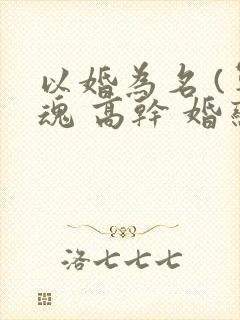 以婚為名（
魂 高幹 婚
洛七七七